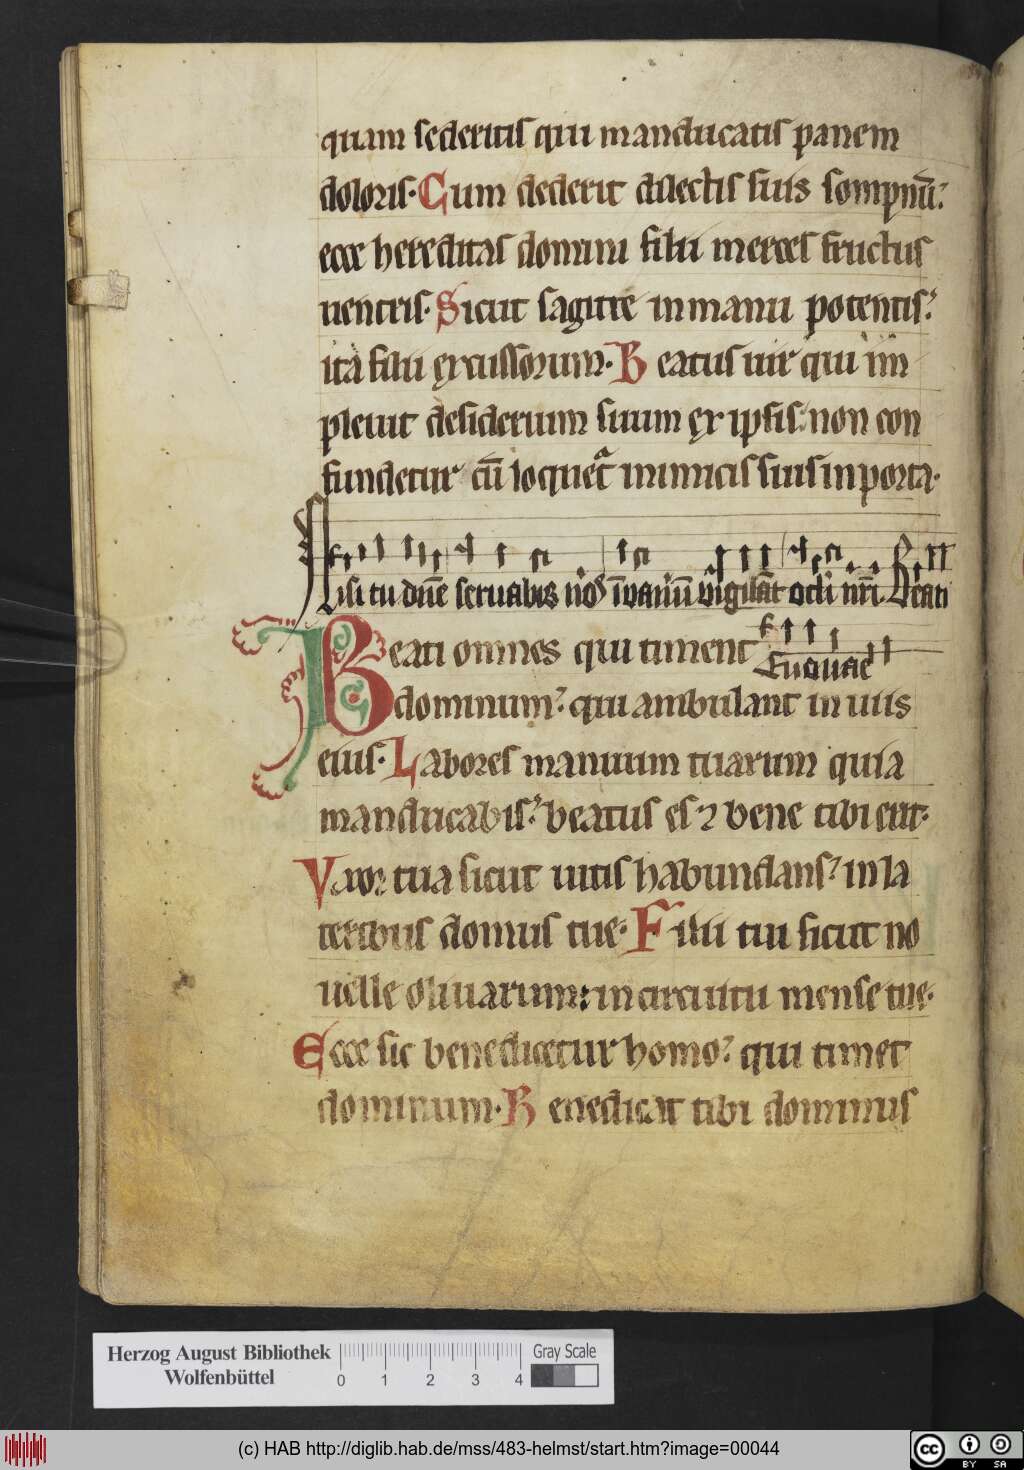 quam sederitis qui manducatis panem
doloris. Cum dederit dilectis suis sompnū:
ecce hereditas domini filii merces fructus
uentris. Sicut sagitte in manu potentis:
ita filii excussorum. Beatus uir qui im
pleuit desiderium suum ex ipsis: non con
fundetur cū loquet᷑ inimicis suis in porta.
Nisi tu dñe seruabis nos ī uanū uigilāt ocli nr̄i. Beati
Beati omnes qui timent Euouae
dominum: qui ambulant in uiis
eius. Labores manuum tuarum quia
manducabis: beatus es ⁊ bene tibi erit.
Vxor tua sicut uitis habundans: in la
teribus domus tue. Filii tui sicut no
uelle oliuarum: in circuitu mense tue.
Ecce sic benedicetur homo: qui timet
dominum. Benedicat tibi dominus
Herzog August Bibliothek
Wolfenbüttel
0 1 2 3 4
Gray Scale
(c) HAB http://diglib.hab.de/mss/483-helmst/start.htm?image=00044
cc BY SA